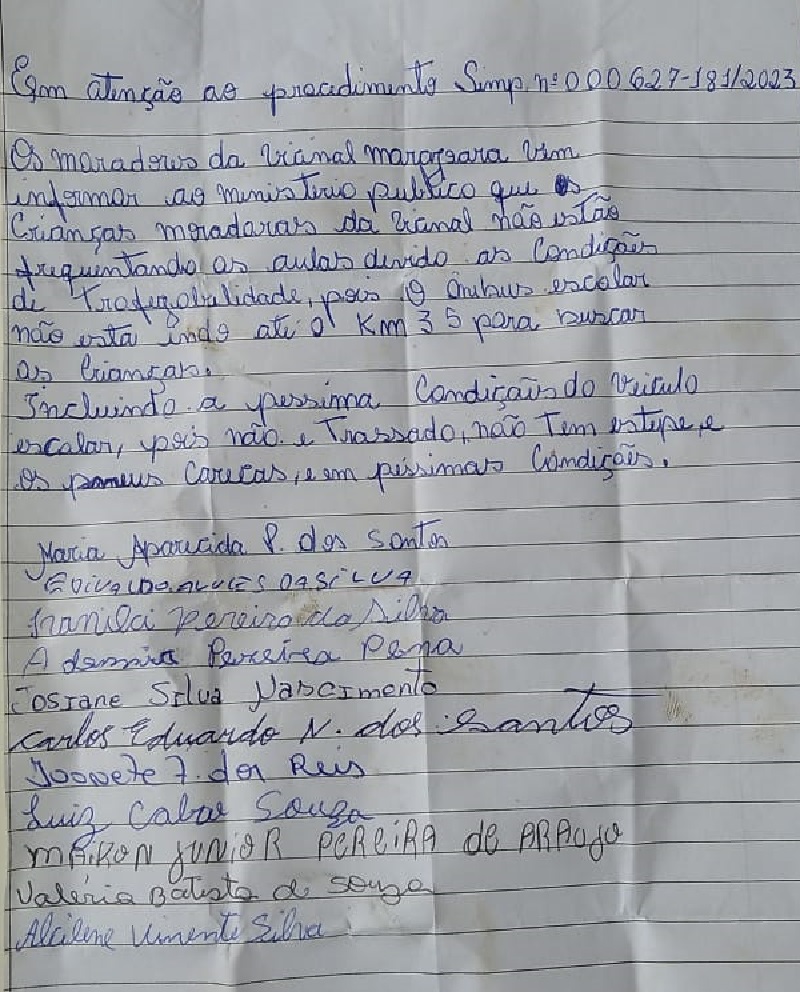 Em atenção ao procedimento Simp nº 000627-181/2023
Os moradores da vicinal marajoara vem
informar ao ministério publico que as
Crianças moradaras da vicinal não estão
frequentando as aulas devido as Condições
de Trafegabilidade, pois o ônibus escolar
não está indo até o Km 35 para buscar
as Crianças.
Incluindo a pessima Condiçãis do Veiculo
escalar, pois não e Trassado, não Tem estepe, e
os pneus Carecas, e em péssimas Condições.
Maria Aparecida P. dos Santos
EDIVALDO ALVES DA SILVA
Pereira da Silva
Pereira Pena
Josiane Silva Nascimento
Carlos Eduardo N. dos Santos
dos Reis
Luiz Souza
MAIKON JUNIOR PEREIRA de ARAUJO
Valéria Batista de Souza
Alcilene Vimente Silva